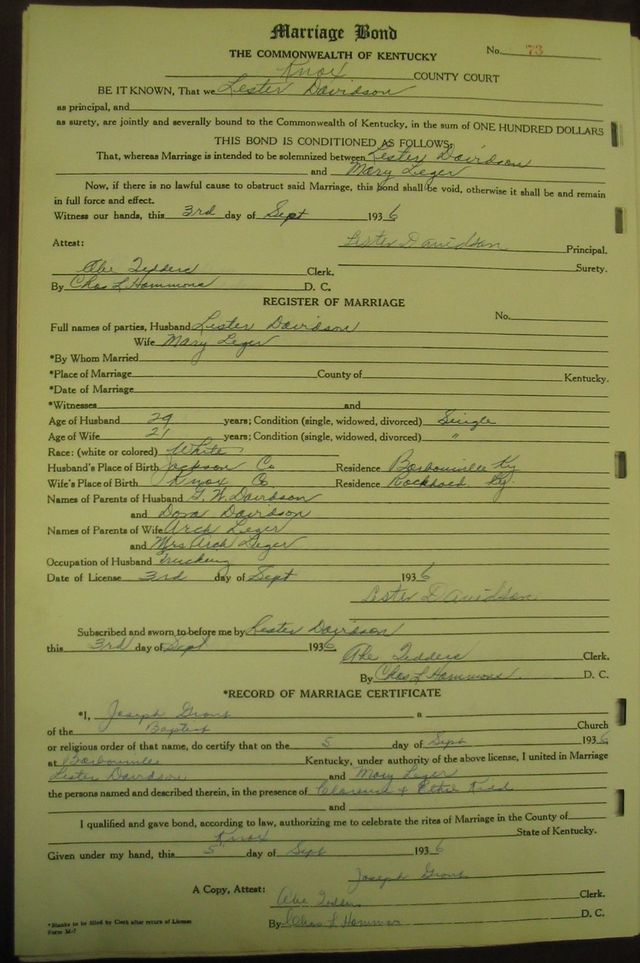 Marriage Bond
THE COMMONWEALTH OF KENTUCKY No. 73
Knox COUNTY COURT
BE IT KNOWN, That we Lester Davidson
as principal, and
as surety, are jointly and severally bound to the Commonwealth of Kentucky, in the sum of ONE HUNDRED DOLLARS
THIS BOND IS CONDITIONED AS FOLLOWS:
That, whereas Marriage is intended to be solemnized between Lester Davidson
and Mary Leger
Now, if there is no lawful cause to obstruct said Marriage, this bond shall be void, otherwise it shall be and remain
in full force and effect.
Witness our hands, this 3rd day of Sept 1936
Attest: Lester Davidson Principal.
Abe Tedders Clerk. Surety.
By Chas L Hammons D. C.
REGISTER OF MARRIAGE
No.
Full names of parties, Husband Lester Davidson
Wife Mary Leger
*By Whom Married
*Place of Marriage County of Kentucky.
*Date of Marriage
*Witnesses and
Age of Husband 29 years; Condition (single, widowed, divorced) Single
Age of Wife 21 years; Condition (single, widowed, divorced) "
Race: (white or colored) White
Husband's Place of Birth Jackson Co Residence Barbourville Ky
Wife's Place of Birth Knox Co. Residence Ky.
Names of Parents of Husband G. W. Davidson
and Dora Davidson
Names of Parents of Wife Arch Leger
and Mrs Arch Leger
Occupation of Husband Trucking
Date of License 3rd day of Sept 1936
Lester Davidson
Subscribed and sworn to before me by Lester Davidson
this 3rd day of Sept 1936
Abe Tedders Clerk.
By Chas L Hammons D. C.
*RECORD OF MARRIAGE CERTIFICATE
*I, Joseph a
of the Baptist Church
or religious order of that name, do certify that on the 5 day of Sept 1936
at Barbourville Kentucky, under authority of the above license, I united in Marriage
Lester Davidson and Mary Leger
the persons named and described therein, in the presence of Clarence & Ethel Kidd
and
I qualified and gave bond, according to law, authorizing me to celebrate the rites of Marriage in the County of
Knox State of Kentucky.
Given under my hand, this 5 day of Sept 1936
Joseph
A Copy, Attest: Abe Tedders Clerk.
By Chas L Hammons D. C.
*Blanks to be filled by Clerk after return of License
Form M-7